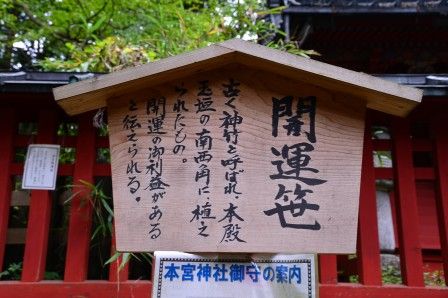 開運笹
古く神竹と呼ばれ、本殿
玉垣の南西角に植え
られたもの。
開運の御利益がある
と伝てられる。
本宮神社御守の案内